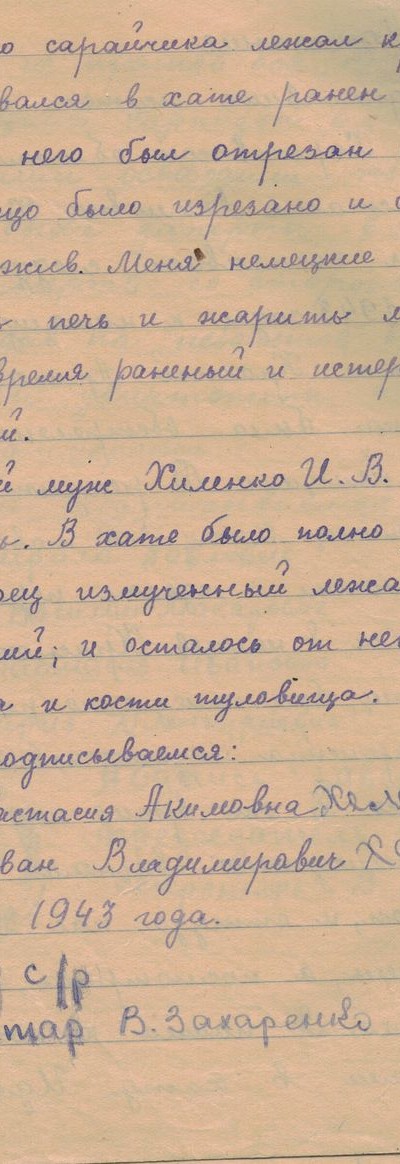 о сарайчика лежал к
вался в хате ранен
него был отрезан
цо было изрезано и
жив. Меня немецкие
ь печь и жарить
время раненый и истер
й.
й муж Хименко И. В.
ь. В хате было полно
оец измученный лежа
ий; и осталось от не
а и кости туловища.
одписываемся:
астасия Акимовна
ван Владимирович
1943 года.
с/р
тар В. Захаренко